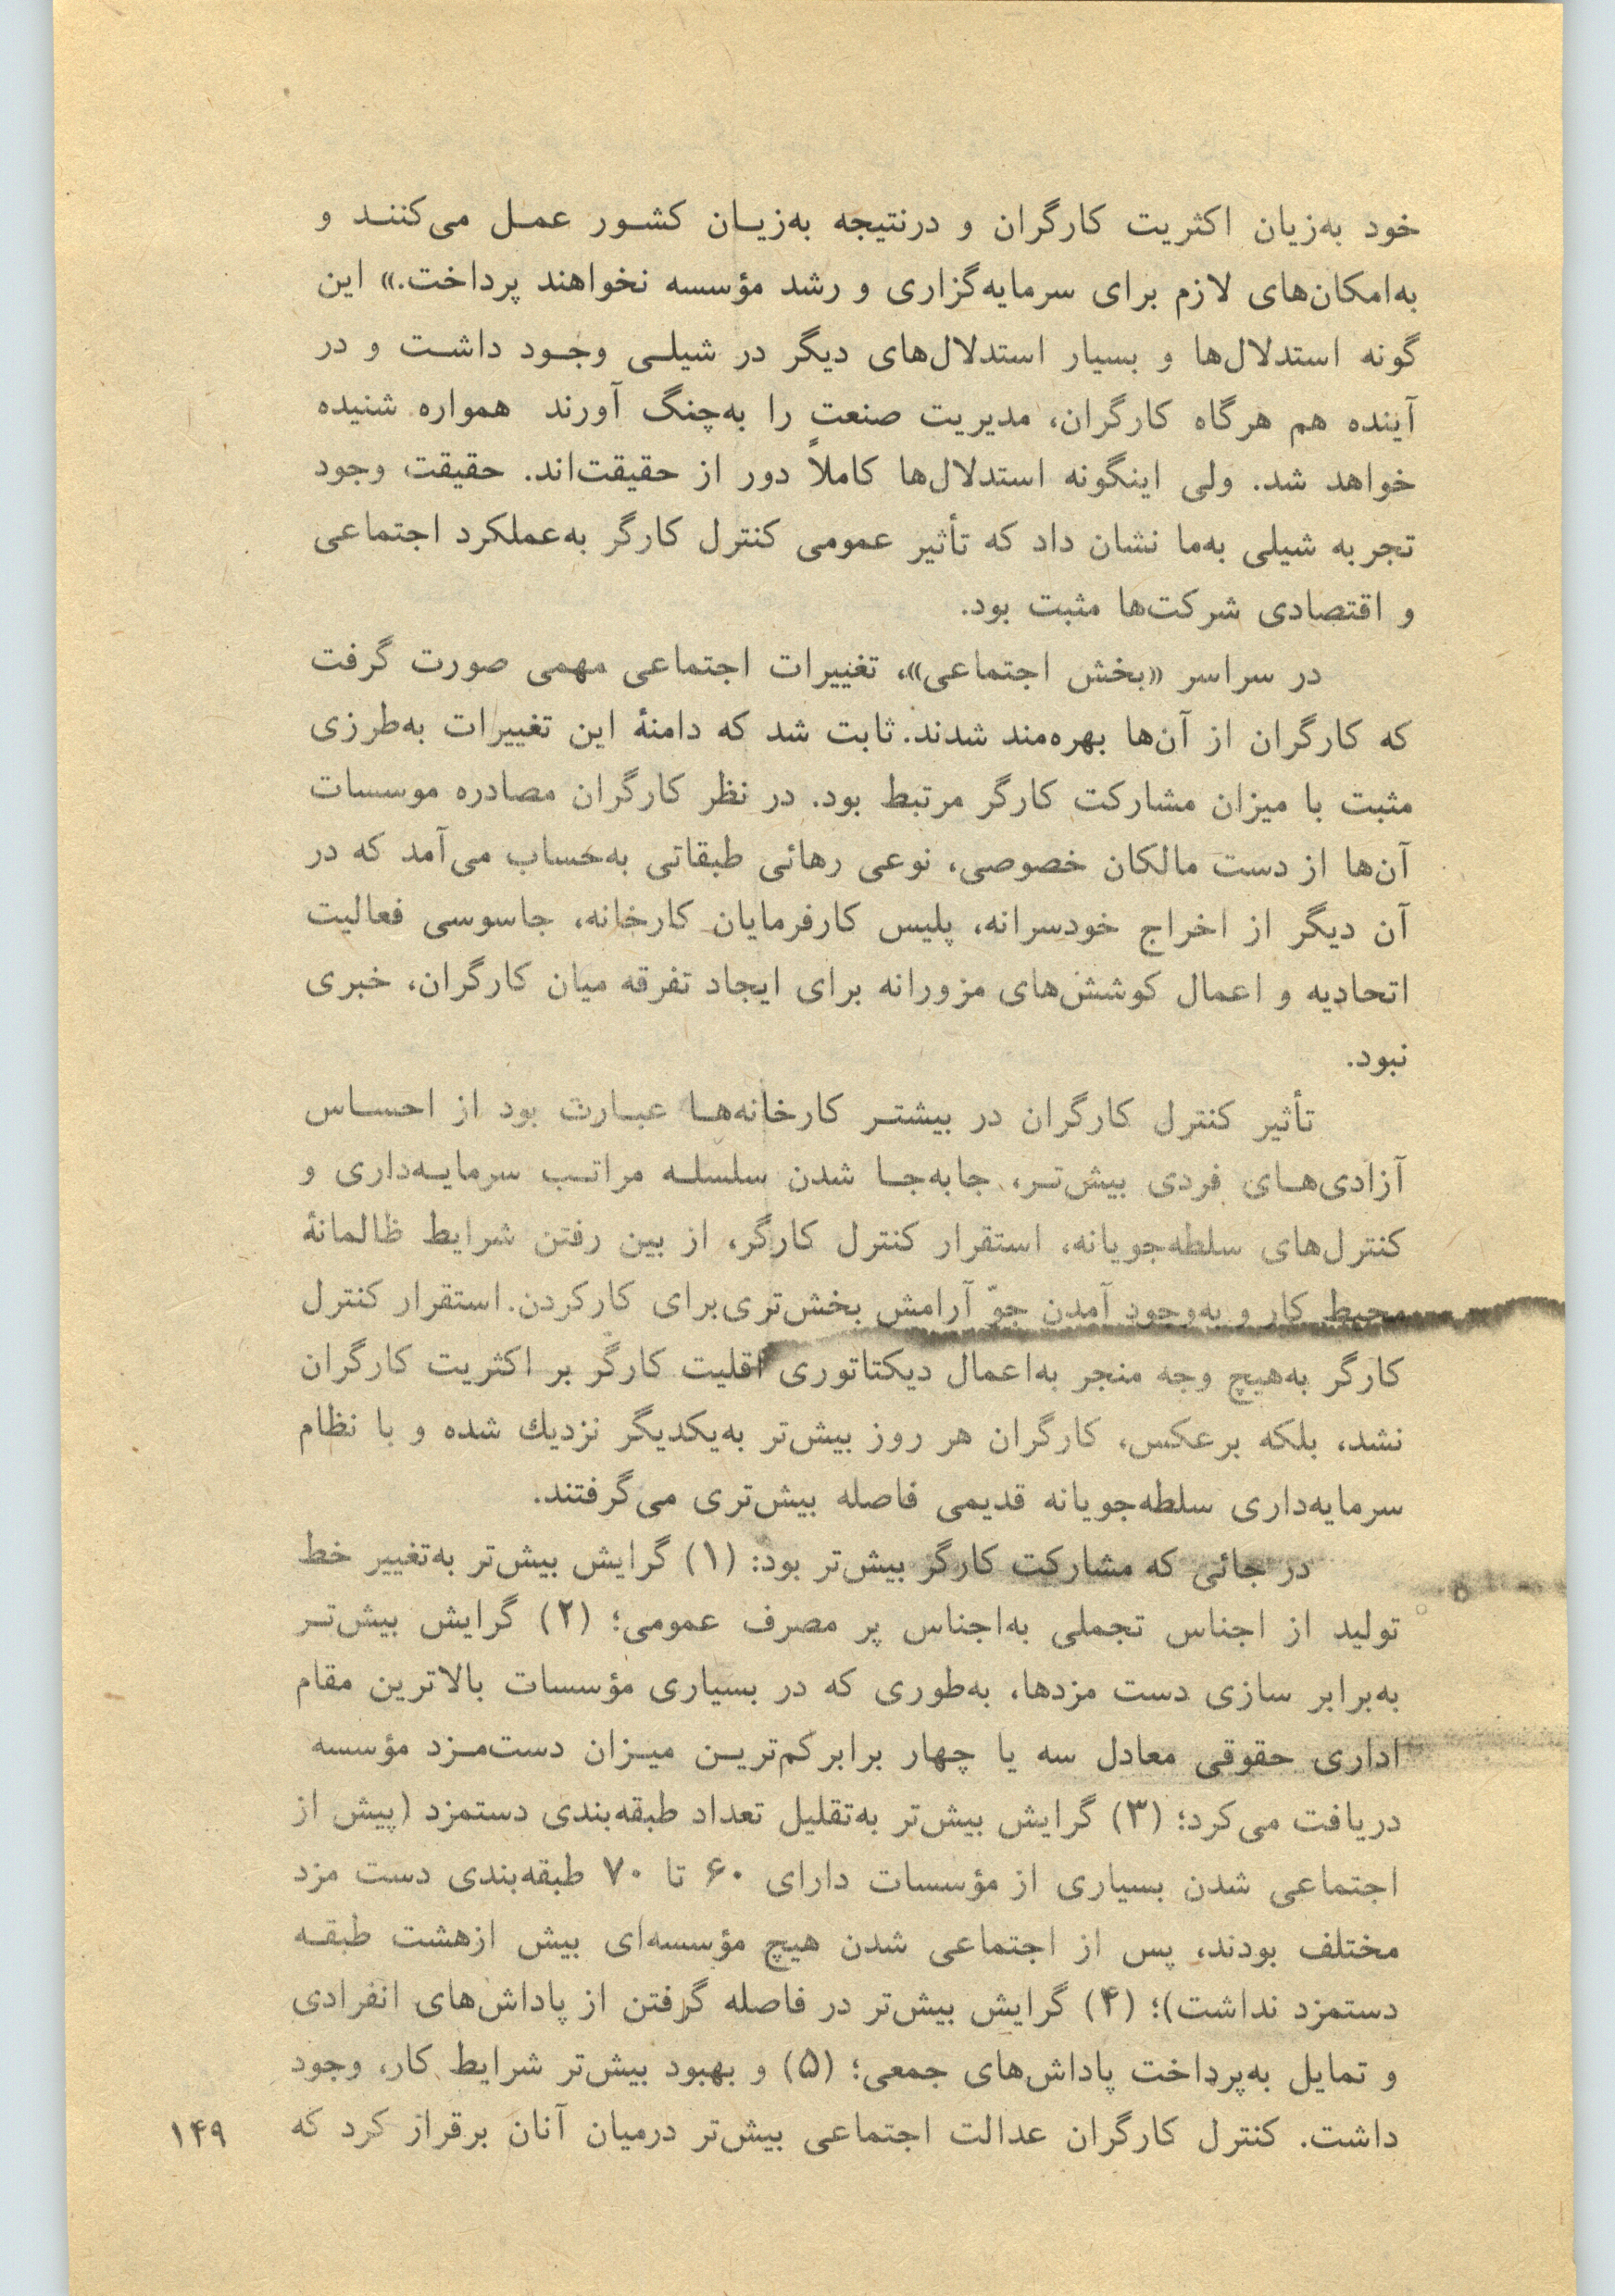 خود به‌زیان اکثریت کارگران و درنتیجه به‌زیـان کشـور عمـل می‌کننـد و
به‌امکان‌های لازم برای سرمایه‌گزاری و رشد مؤسسه نخواهند پرداخت.» این
گونه استدلال‌ها و بسیار استدلال‌های دیگر در شیلـی وجـود داشـت و در
آینده هم هرگاه کارگران، مدیریت صنعت را به‌چنگ آورند همواره شنیده
خواهد شد. ولی اینگونه استدلال‌ها کاملاً دور از حقیقت‌اند. حقیقت وجود
تجربه شیلی به‌ما نشان داد که تأثیر عمومی کنترل کارگر به‌عملکرد اجتماعی
و اقتصادی شرکت‌ها مثبت بود.
در سراسر «بخش اجتماعی»، تغییرات اجتماعی مهمی صورت گرفت
که کارگران از آن‌ها بهره‌مند شدند. ثابت شد که دامنهٔ این تغییرات به‌طرزی
مثبت با میزان مشارکت کارگر مرتبط بود. در نظر کارگران مصادره موسسات
آن‌ها از دست مالکان خصوصی، نوعی رهائی طبقاتی به‌حساب می‌آمد که در
آن دیگر از اخراج خودسرانه، پلیس کارفرمایان کارخانه، جاسوسی فعالیت
اتحادیه و اعمال کوشش‌های مزورانه برای ایجاد تفرقه میان کارگران، خبری
نبود.
تأثیر کنترل کارگران در بیشتـر کارخانه‌هـا عبـارت بود از احسـاس
آزادی‌هـای فردی بیش‌تـر، جابه‌جـا شدن سلسلـه مراتـب سرمایـه‌داری و
کنترل‌های سلطه‌جویانه، استقرار کنترل کارگر، از بین رفتن شرایط ظالمانهٔ
محیط کار و به‌وجود آمدن جوّ آرامش بخش‌تری‌برای کارکردن. استقرار کنترل
کارگر به‌هیچ وجه منجر به‌اعمال دیکتاتوری اقلیت کارگر بر اکثریت کارگران
نشد، بلکه برعکس، کارگران هر روز بیش‌تر به‌یکدیگر نزدیك شده و با نظام
سرمایه‌داری سلطه‌جویانه قدیمی فاصله بیش‌تری می‌گرفتند.
در جائی که مشارکت کارگر بیش‌تر بود: (۱) گرایش بیش‌تر به‌تغییر خط
تولید از اجناس تجملی به‌اجناس پر مصرف عمومی؛ (۲) گرایش بیش‌تـر
به‌برابر سازی دست مزدها، به‌طوری که در بسیاری مؤسسات بالاترین مقام
اداری حقوقی معادل سه یا چهار برابرکم‌تریـن میـزان دست‌مـزد مؤسسه
دریافت می‌کرد؛ (۳) گرایش بیش‌تر به‌تقلیل تعداد طبقه‌بندی دستمزد (پیش از
اجتماعی شدن بسیاری از مؤسسات دارای ۶۰ تا ۷۰ طبقه‌بندی دست مزد
مختلف بودند، پس از اجتماعی شدن هیچ مؤسسه‌ای بیش ازهشت طبقـه
دستمزد نداشت)؛ (۴) گرایش بیش‌تر در فاصله گرفتن از پاداش‌های انفرادی
و تمایل به‌پرداخت پاداش‌های جمعی؛ (۵) و بهبود بیش‌تر شرایط کار، وجود
داشت. کنترل کارگران عدالت اجتماعی بیش‌تر درمیان آنان برقراز کرد که
۱۴۹